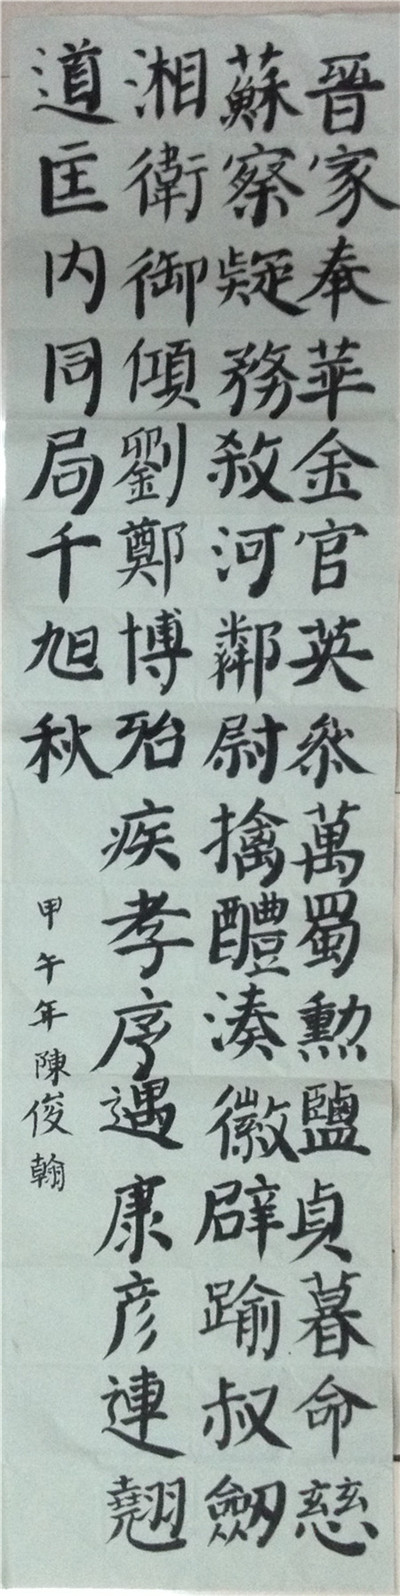 晉家奉華金官英參萬蜀勲鹽貞暮命慈
蘇察疑務赦河鄰尉擒醴湊徽辟踰叔劒
湘衛御傾劉鄭博殆疾孝序遇康彦連翹
道匡内同局千旭秋
甲午年陳俊翰